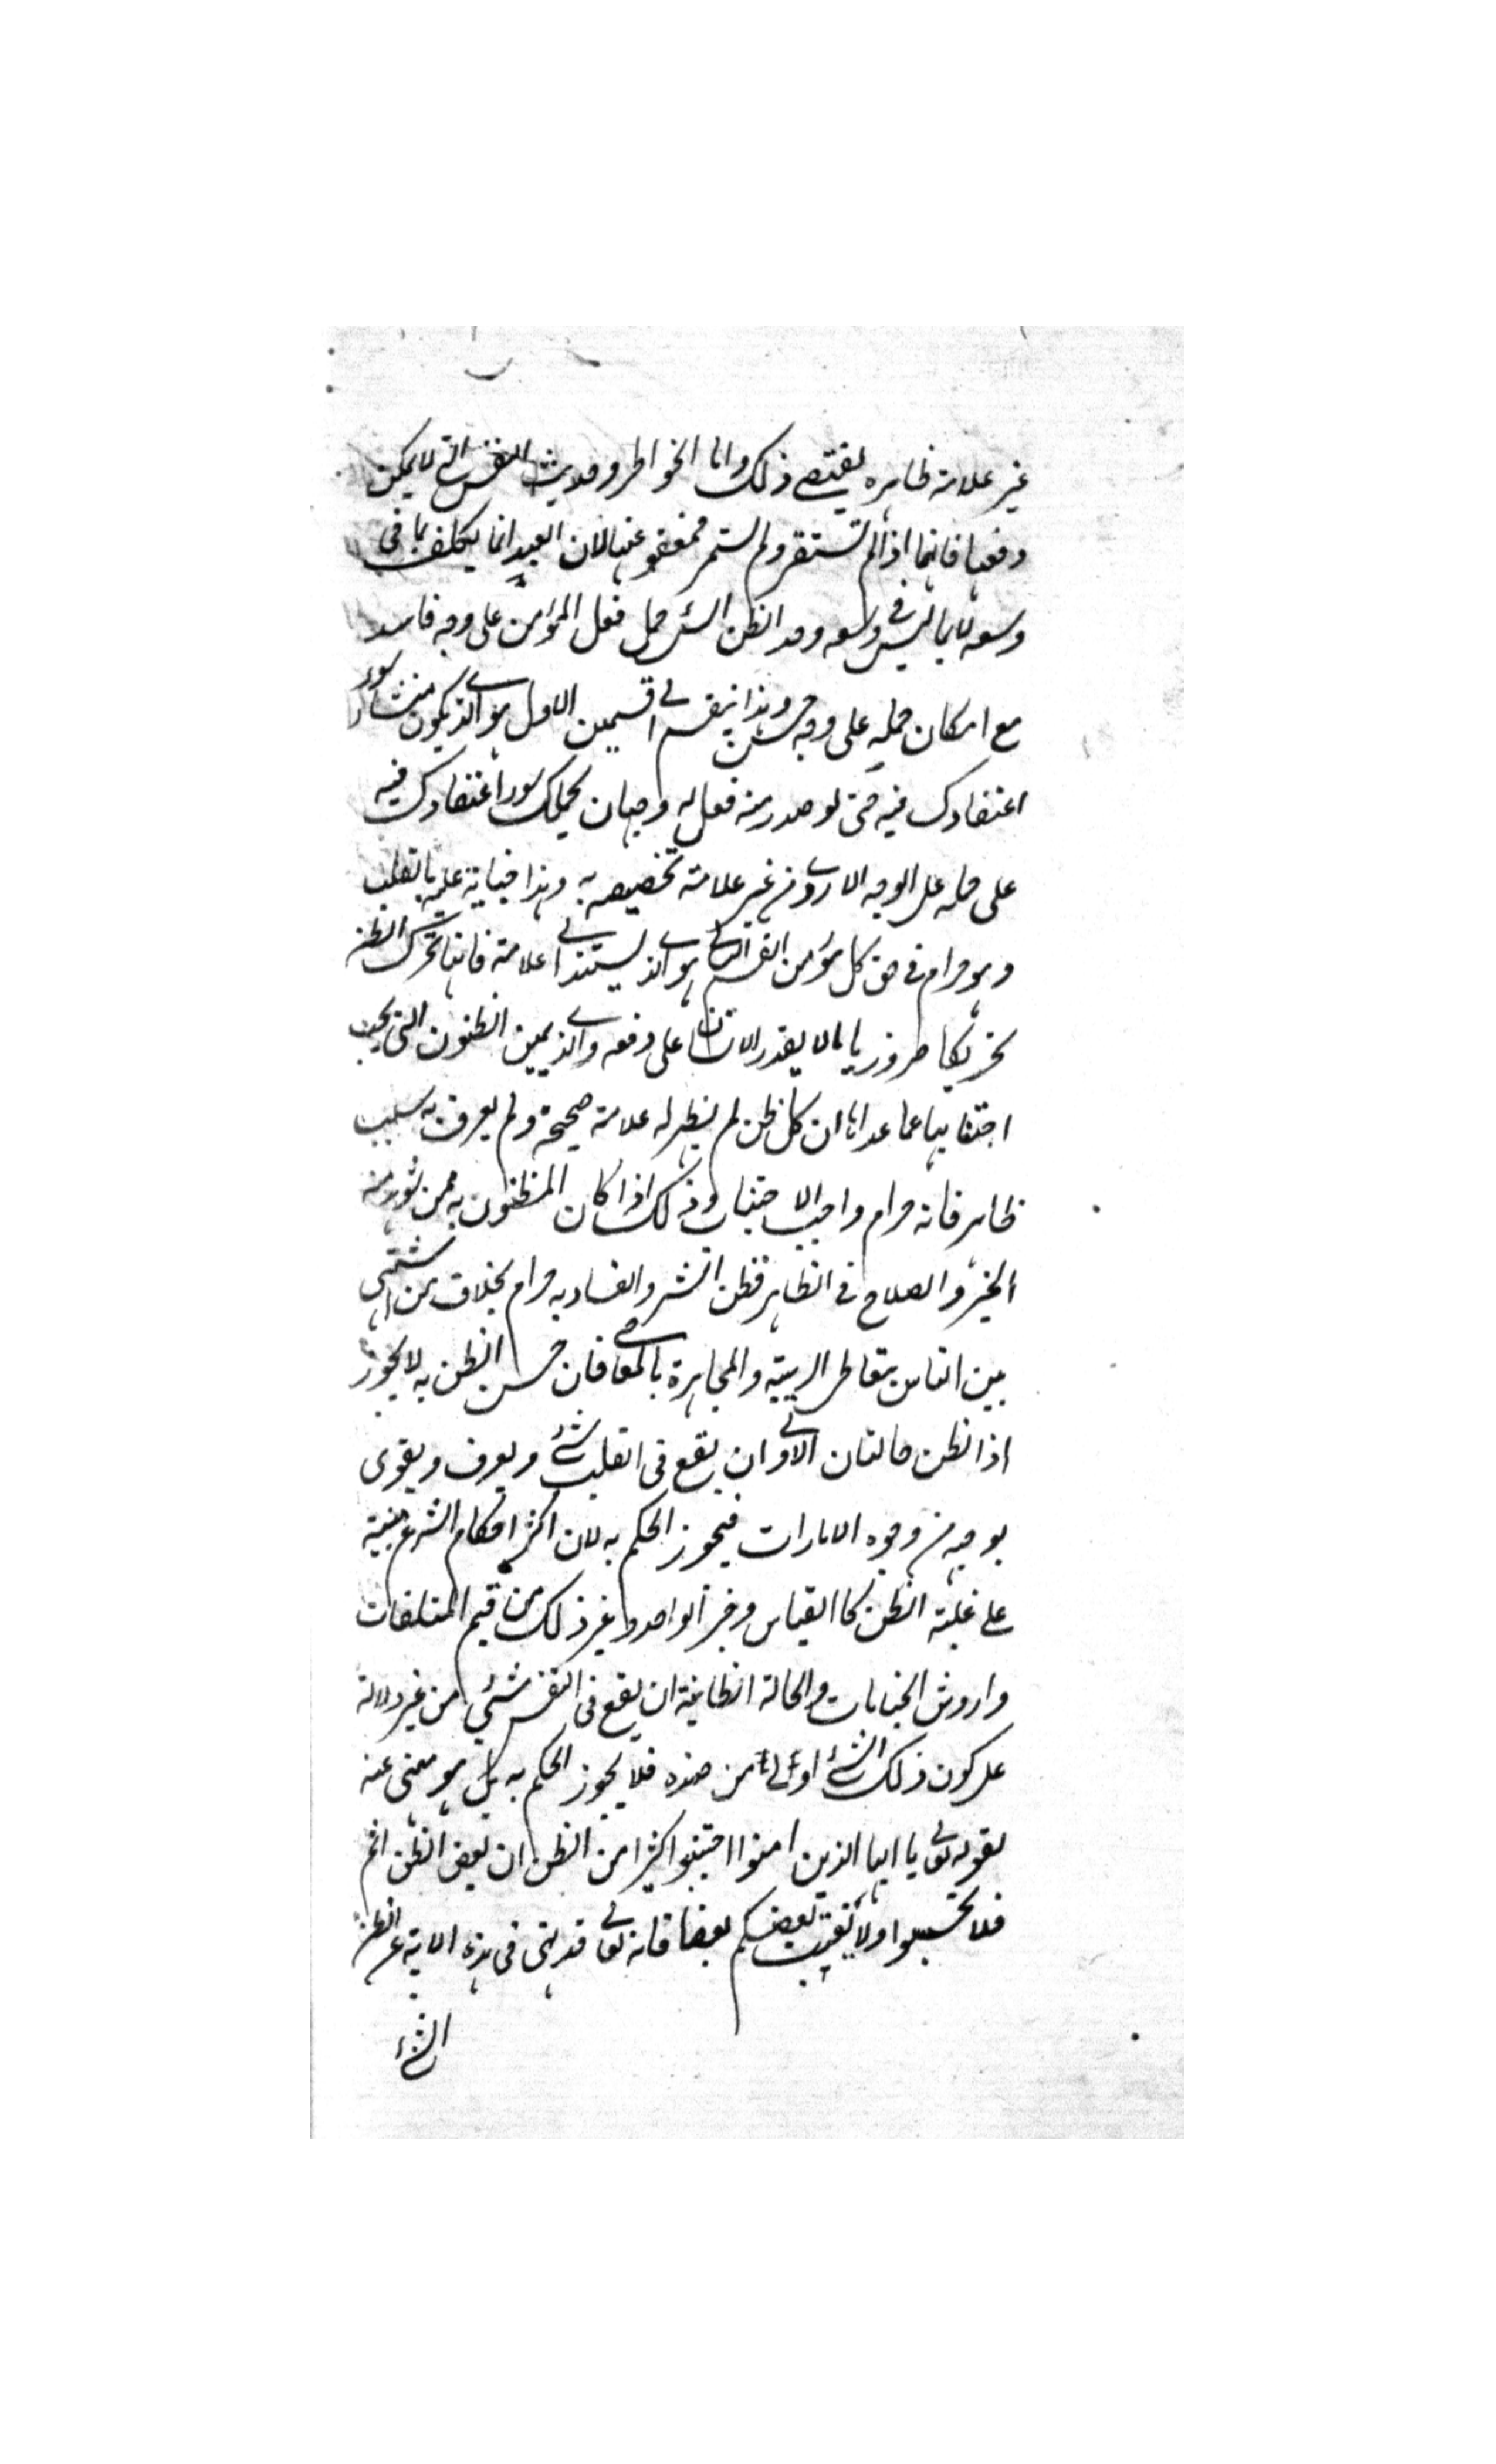 غير علامة ظاهره يقتضي ذلك واما الخواطر وحديث النفس التي لا يمكن
دفعها فانها اذا لم تستقر ولم تستمر فمعفو عنها لان العبد انما يكلف بما في
وسعه لا بما ليس في وسعه وحد الظن السئ حمل فعل المؤمن على وجه فاسد
مع امكان حمله على وجه حسن وهذا ينقسم الى قسمين الاول هو الذي يكون منشاؤه سوء
اعتقادك فيه حتى لو صدر منه فعل له وجهان يحملك سوء اعتقادك فيه
على حمله على الوجه الاردى من غير علامة تخصيصه به وهذا جناية عليه بالقلب
وهو حرام في حق كل مؤمن القسم الثاني هو الذي يستند الى علامة فانها تحرك الظن
تحريكا ضروريا لا يقدر الانسان على دفعه والذي يميز الظنون التي يجب
اجتنابها عما عداها ان كل ظن لم يظهر له علامة صحيحة ولم يعرف به سبب
ظاهر فانه حرام واجب الاجتناب وذلك اذا كان المظنون به ممن شوهد منه
الخير والصلاح في الظاهر فظن الشر والفساد به حرام بخلاف من اشتهر
بين الناس بتعاطى الريبة والمجاهرة بالمعاصي فان حسن الظن به لا يجوز
اذ الظن حالتان الاولى ان يقع في القلب شئ ويعرف ويقوى
بوجه من وجوه الامارات فيجوز الحكم به لان اكثر احكام الشرع مبنية
على غلبة الظن كالقياس وخبر الواحد وغير ذلك من قيم المتلفات
واروش الجنايات والحالة الثانية ان يقع في النفس شئي من غير دلالة
على كون ذلك الشئ اولى من ضده فلا يجوز الحكم به بل هو منهى عنه
لقوله تعالى يا ايها الذين امنوا اجتنبوا كثيرا من الظن ان بعض الظن اثم
فلا تجسسوا ولا يغتب بعضكم بعضا فانه تعالى قد نهى في هذه الاية عن الظن
الشئ